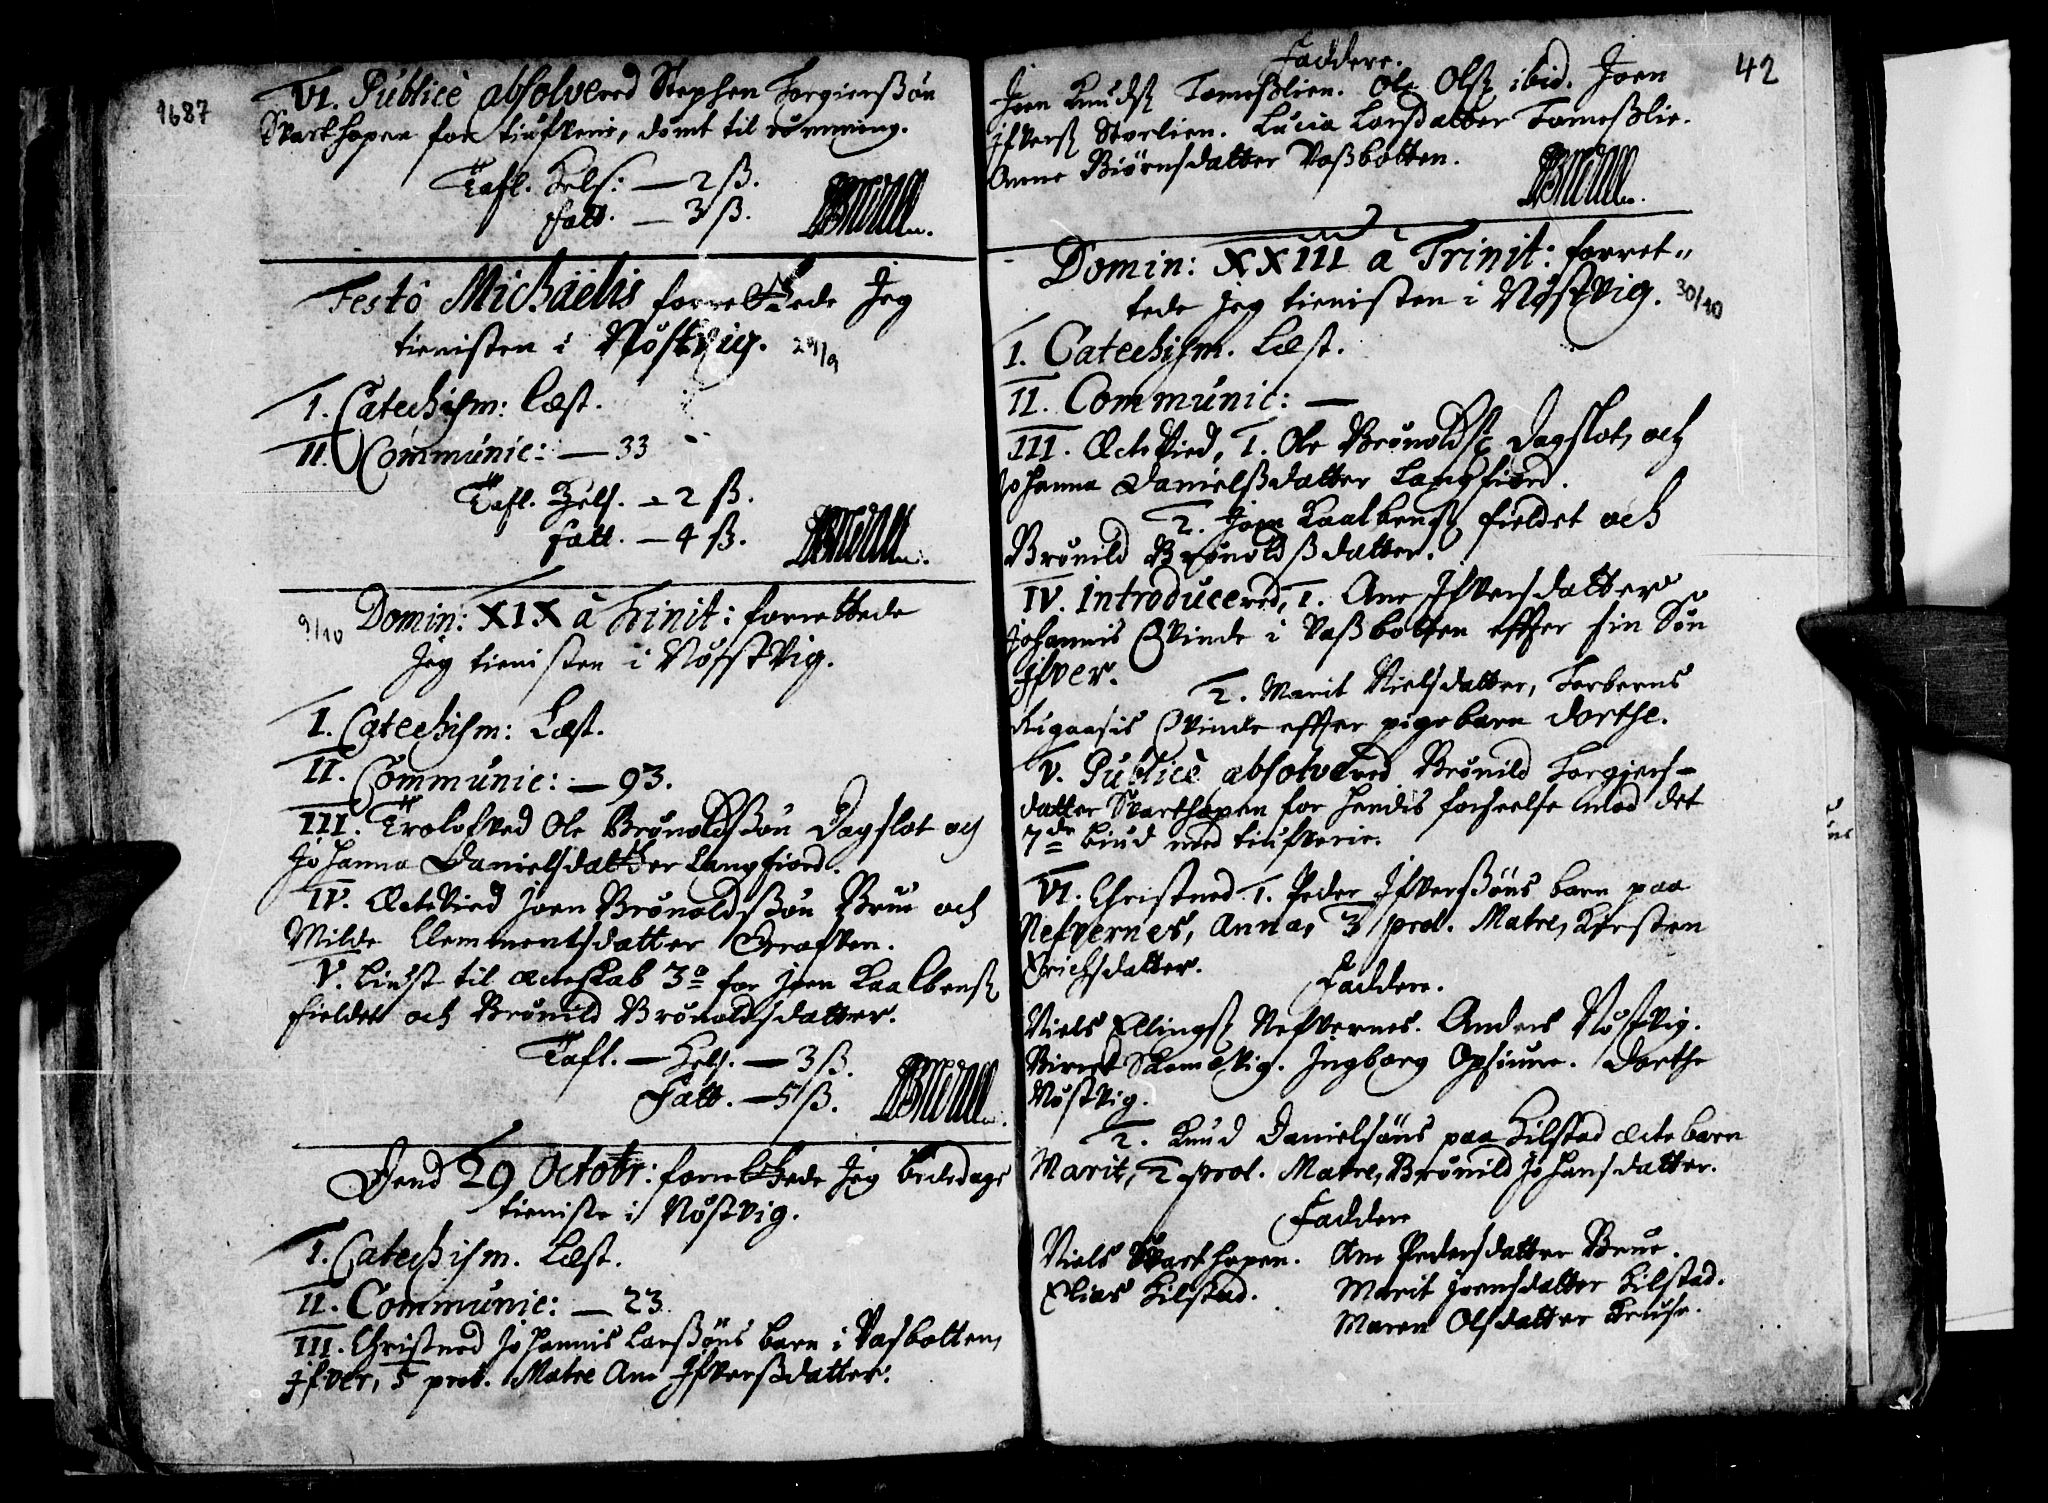 1687
VI. Publicè absolvered Stephen Torgierssøn
Svarthopen for tiufverie, dømt til rømning.
Tafl. Hels: — 2 ß.
Fatt. — 3 ß.
Festô Michäelis forrettede Jeg
tienisten i Nøstvig. 29/9
I. Catechism: Læst.
II. Communic: — 33
Tafl. Hels. — 2 ß.
Fatt. — 4 ß.
9/10 Domin: XIX à Trinit: forrettede
Jeg tienisten i Nøstvig.
I. Catechism: Læst.
II. Communic: — 93.
III. Trolofved Ole Brønoldssøn Dagslot och
Johanna Danielsdatter Langfiord.
IV. Ectevied Joen Brønoldssøn Brue och
Milde Clemmentsdatter Grafven.
V. Liust til ecteskab 3º for Joen Kaalbens.
fieldet och Brønild Brønoldsdatter.
Tafl. — Hels. — 3 ß.
Fatt. — 5 ß.
Dend 29 Octobr: forrettede Jeg bededags
tieniste i Nøstvig.
I. Catechism. Læst.
II. Communic: — 23
III. Christned Johannis Larssøns barn i Vasbotten,
Ifver, 5 prol. Matre Ane Ifverssdatter.
42
Faddere.
Joen Knuds. Tomesslien. Ole Ols. ibid. Joen
Ifvers. Storlien. Lucia Larsdatter Tomesslie.
Anne Biørnsdatter Vassbotten.
Domin: XXIII à Trinit: forret-
tede jeg tienisten i Nøstvig. 30/10
I. Catechism. Læst.
II. Communic: —
III. Ectevied, 1. Ole Brønolds. Dagslot, och
Johanna Danielssdatter Langfiord.
2. Joen Kaalbens. fieldet och
Brønild Brønoldssdatter.
IV. Introducered, 1. Ane Ifversdatter
Johannis Qvinde i Vassbotten effter sin Søn
Ifver.
2. Marit Nielsdatter, Torberns
Rugaasis Qvinde effter pigebarn Dorthe.
V. Publicè absolvered Brønild Torgiers-
datter Svarthopen for hendis forseelse mod det
7de bud med tiufverie.
VI. Christned 1. Peder Ifverssøns barn paa
Nefvernes, Anna, 3 prol. Matre, Kirsten
Erichsdatter.
Faddere.
Niels Ellings. Nefvernes. Anders Nøstvig.
Birret Skomovig. Ingborg Opsiuue. Dorthe
Nøstvig.
2. Knud Danielsøns paa Hilstad ecte barn
Marit, 2 prol. Matre, Brønild Johansdatter.
Faddere
Niels Svarthopen. Ane Pedersdatter Brue.
Elias Hilstad. Marit Joensdatter Hilstad.
Maren Olsdatter Kruse.